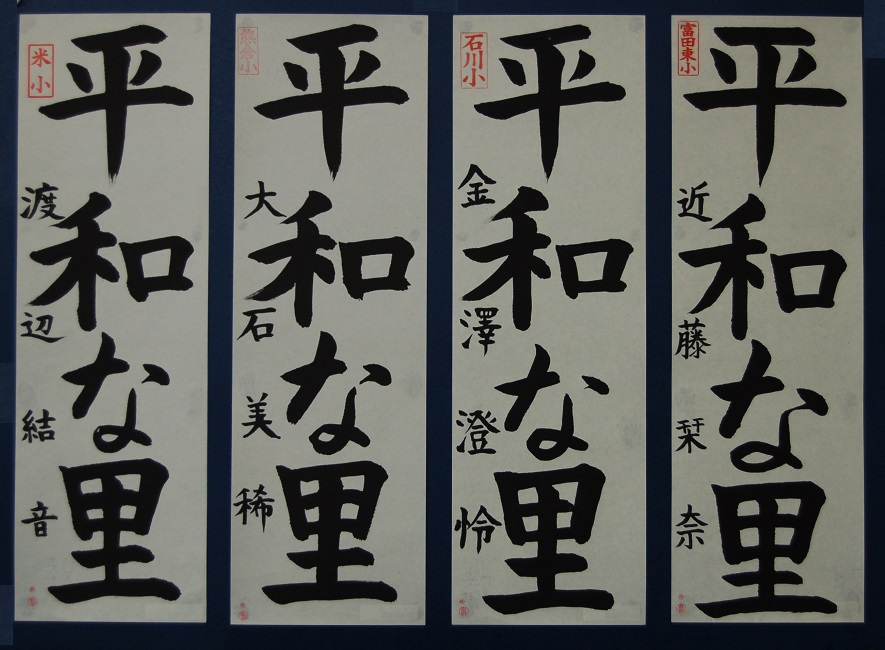 平和な里
富田東小
近藤栞奈
平和な里
石川小
金澤澄怜
平和な里
大石美稀
平和な里
米小
渡辺結音